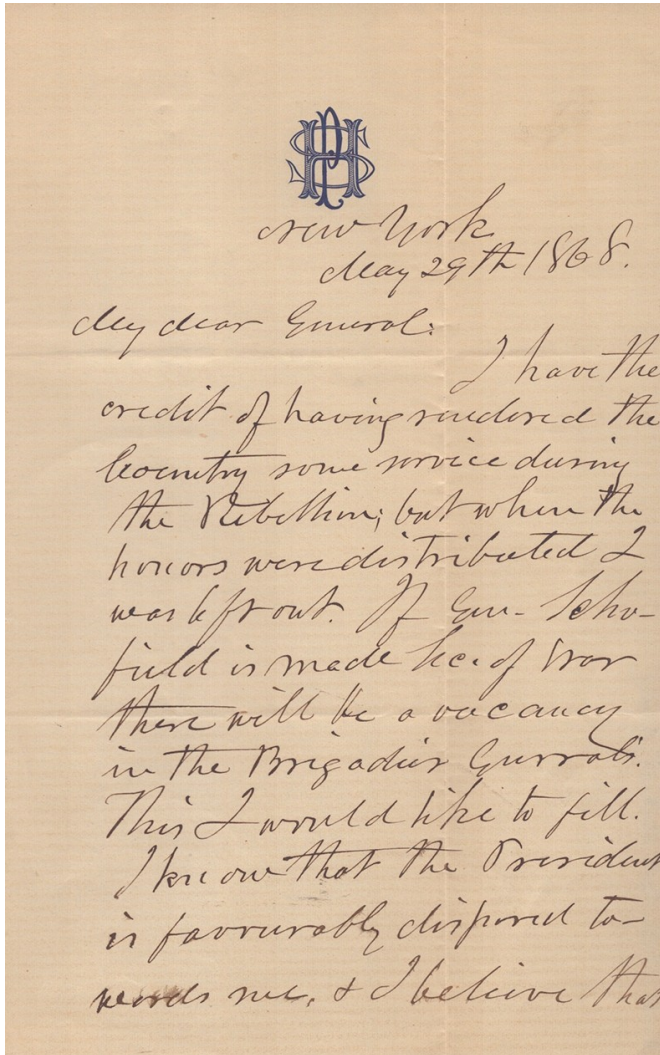 New York
May 29th 1868.
My dear General:
I have the
credit of having rendered the
Country some service during
the Rebellion; but when the
honors were distributed I
was left out. If Gen- Scho-
field is made Sec. of War
there will be a vacancy
in the Brigadier Generals.
This I would like to fill.
I know that the President
is favourably disposed to-
wards me, & I believe that